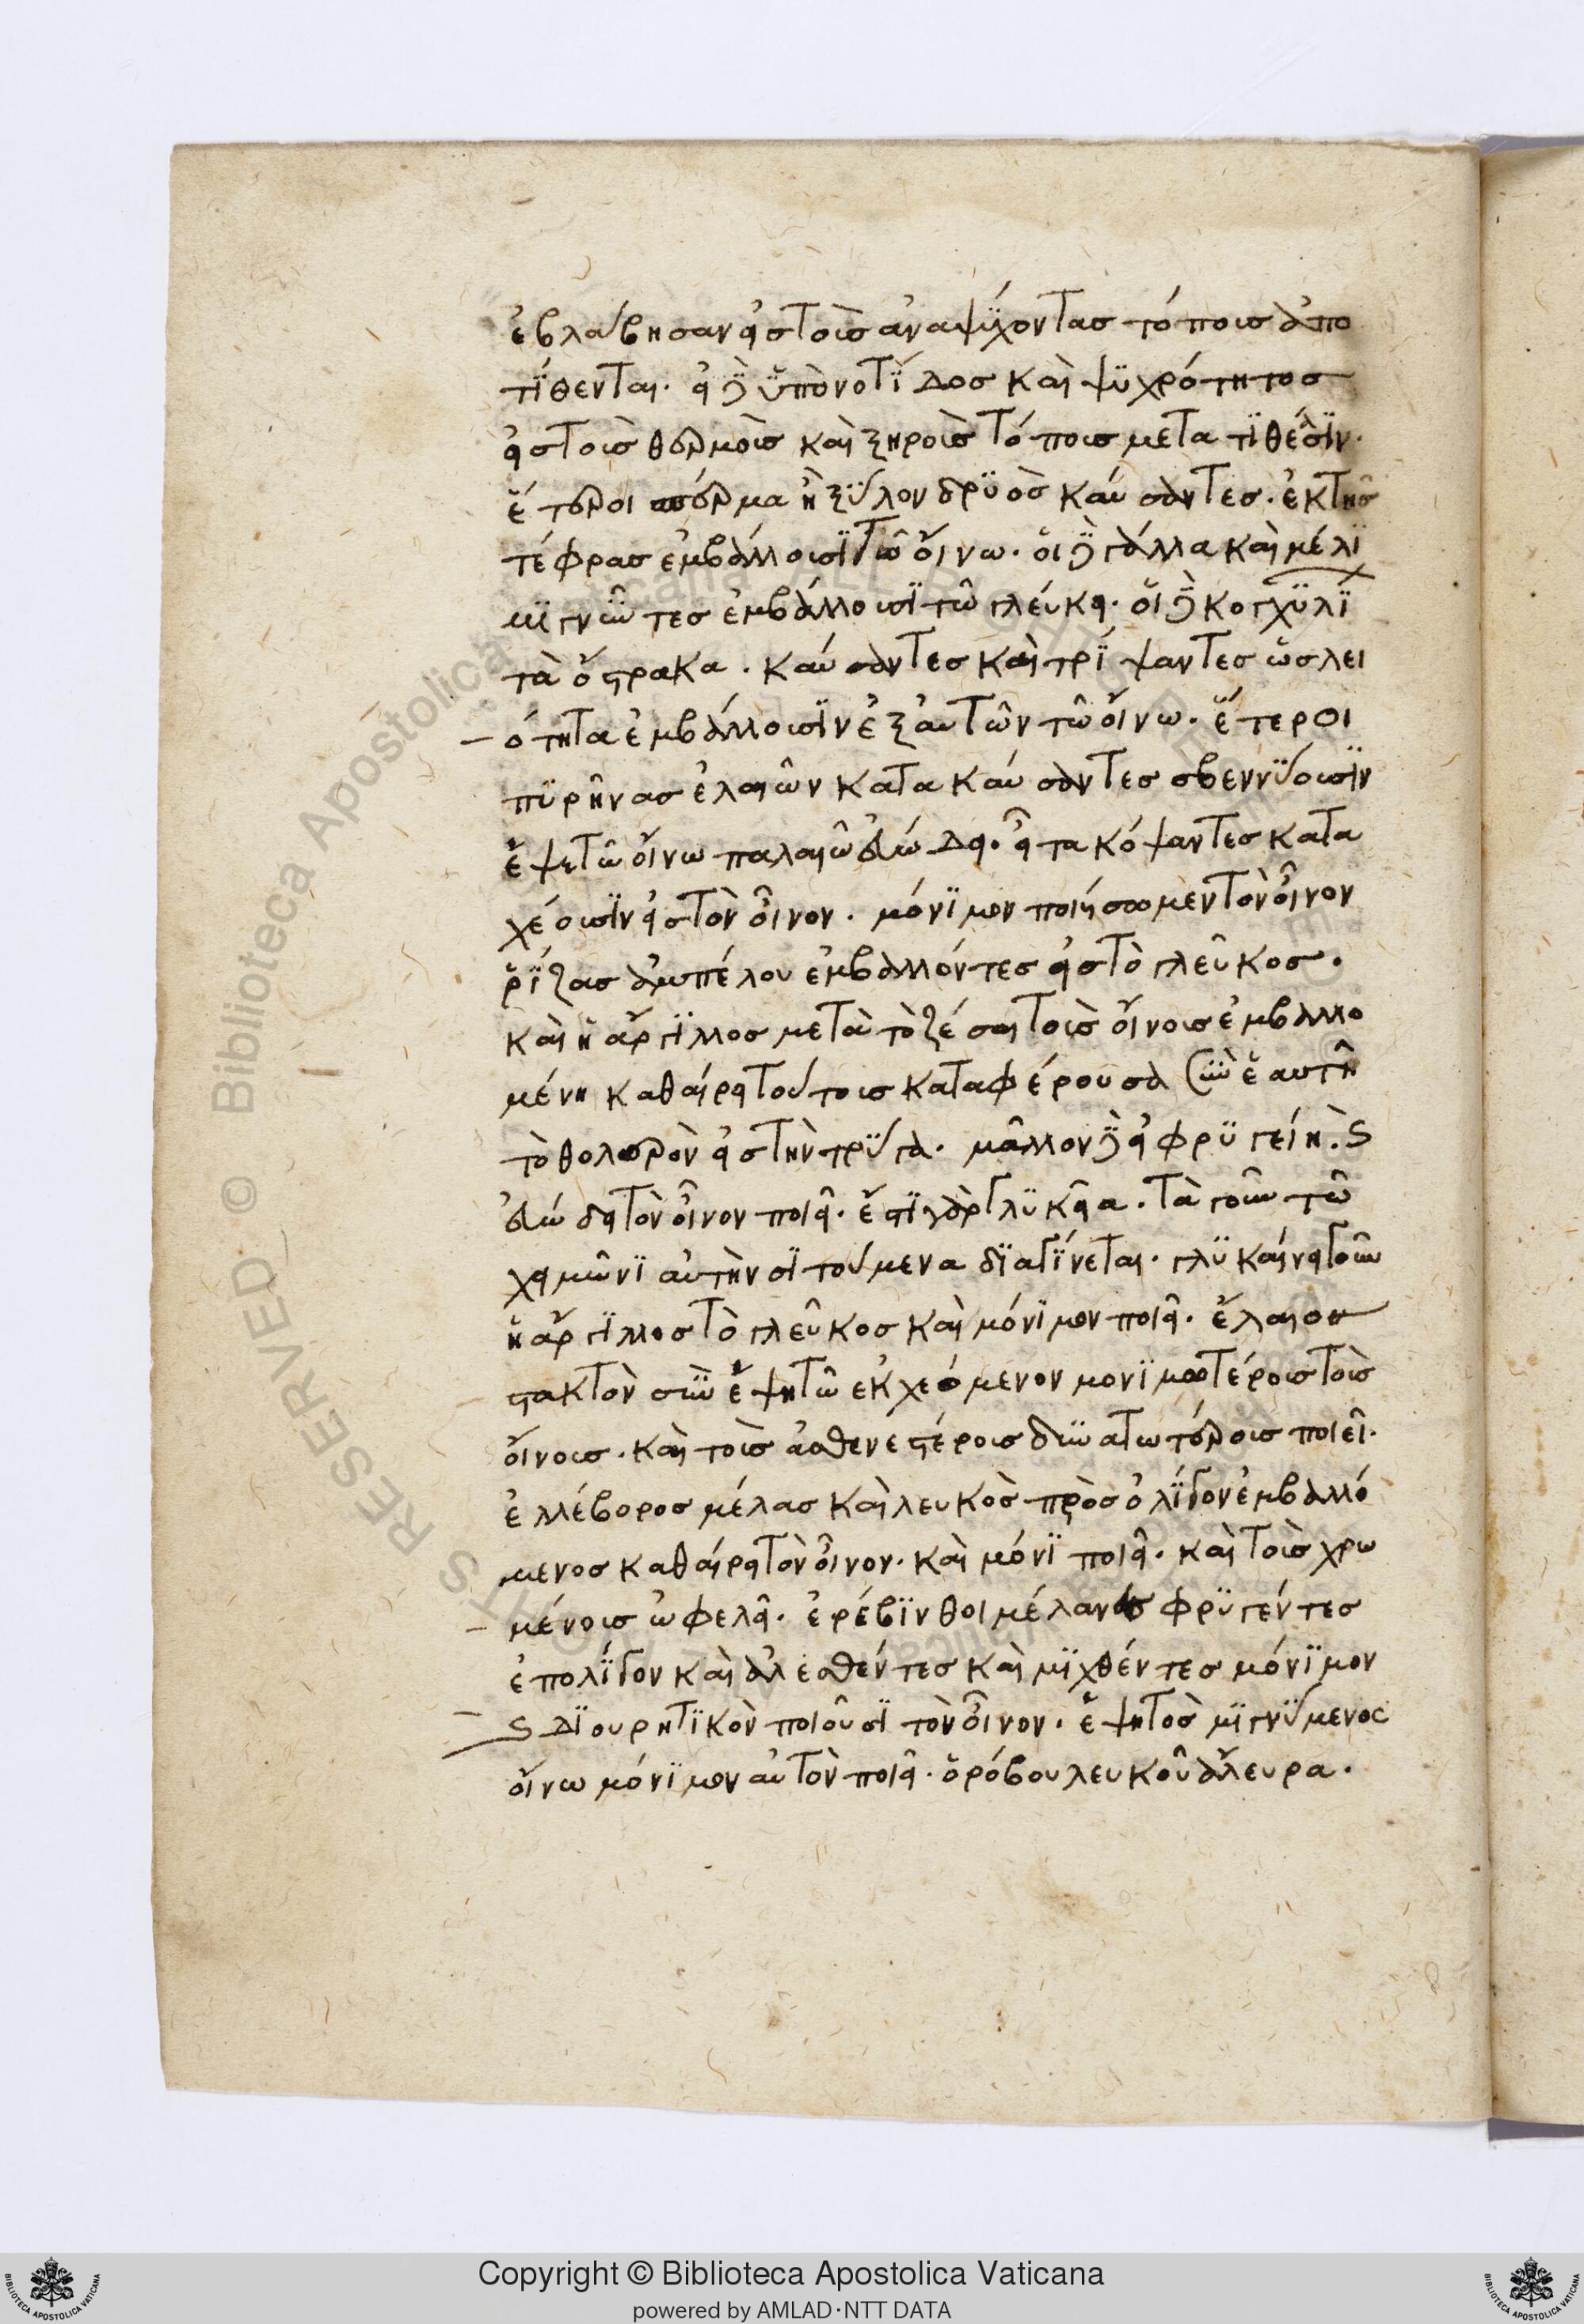 ἐβλάβησαν εἰς τοῖς ἀναψύχοντας τόποις ἀπο
τίθενται. εἰ δὲ ὑπὸ νοτίδος καὶ ψυχρότητος
εἰς τοῖς θερμοῖς καὶ ξηροῖς τόποις μετατιθέασιν.
ἕτεροι σπέρμα ἢ ξύλον δρυὸς καύσαντες. ἐκ τῆς
τέφρας ἐμβάλλουσι τῷ οἴνω. οἱ δὲ γάλλα καὶ μέλι
μιγνῦντες ἐμβάλλουσι τῶ γλεύκει. οἱ δὲ κογχύλι
τὰ ὄστρακα. καύσαντες καὶ τρίψαντες ὡς λει
ότητα ἐμβάλλουσιν ἐξ αὐτῶν τῶ οἴνω. ἕτεροι
πυρῆνας ἐλαιῶν κατακαύσαντες σβεννύουσιν
ἕψετῶ οἴνω παλαιῶ εὐώδει. εἶτα κόψαντες κατα
χέουσιν εἰς τὸν οἶνον. μόνιμον ποιήσομεν τὸν οἶνον
ῥίζας ἀμπέλου ἐμβαλλόντες εἰς τὸ γλεῦκος.
καὶ ἡ ἄργιλλος μετὰ τὸ ζέσαι τοῖς οἴνοις ἐμβαλλο
μένη καθαίρει τούτοις καταφέρουσα σὺν ἑαυτῆ
τὸ θολερὸν εἰς τὴν τρύγα. μᾶλλον δὲ εἰ φρυγείη. καὶ
εὐώδη τὸν οἶνον ποιεῖ. ἔστι γὰρ γλυκεῖα. τὰ γοῦν τῶ
χειμῶνι αὐτὴν σιτούμενα διαγίνεται. γλυκαίνει γοῦν
ἡ ἄργιλλος τὸ γλεῦκος καὶ μόνιμον ποιεῖ. ἔλαιον
στακτὸν σὺν ἑψητῶ ἐκχεόμενον μονιμοτέροις τοῖς
οἴνοις. καὶ τοῖς ἀσθενεστέροις δυνατωτέροις ποιεῖ.
ἐλλέβορος μέλας καὶ λευκὸς πρὸς ὀλίγον ἐμβαλλό
μενος καθαίρει τὸν οἶνον. καὶ μόνι ποιεῖ. καὶ τοῖς χρω
μένοις ὠφελεῖ. ἐρέβινθοι μέλανες φρυγέντες
ἐπολίγον καὶ ἀλεσθέντες καὶ μιχθέντες μόνιμον
καὶ διουρητικὸν ποιοῦσι τὸν οἶνον. ἑψητὸς μιγνύμενος
οἴνω μόνιμον αὐτὸν ποιεῖ. ὀρόβου λευκοῦ ἄλευρα.
Copyright © Biblioteca Apostolica Vaticana
powered by AMLAD·NTT DATA